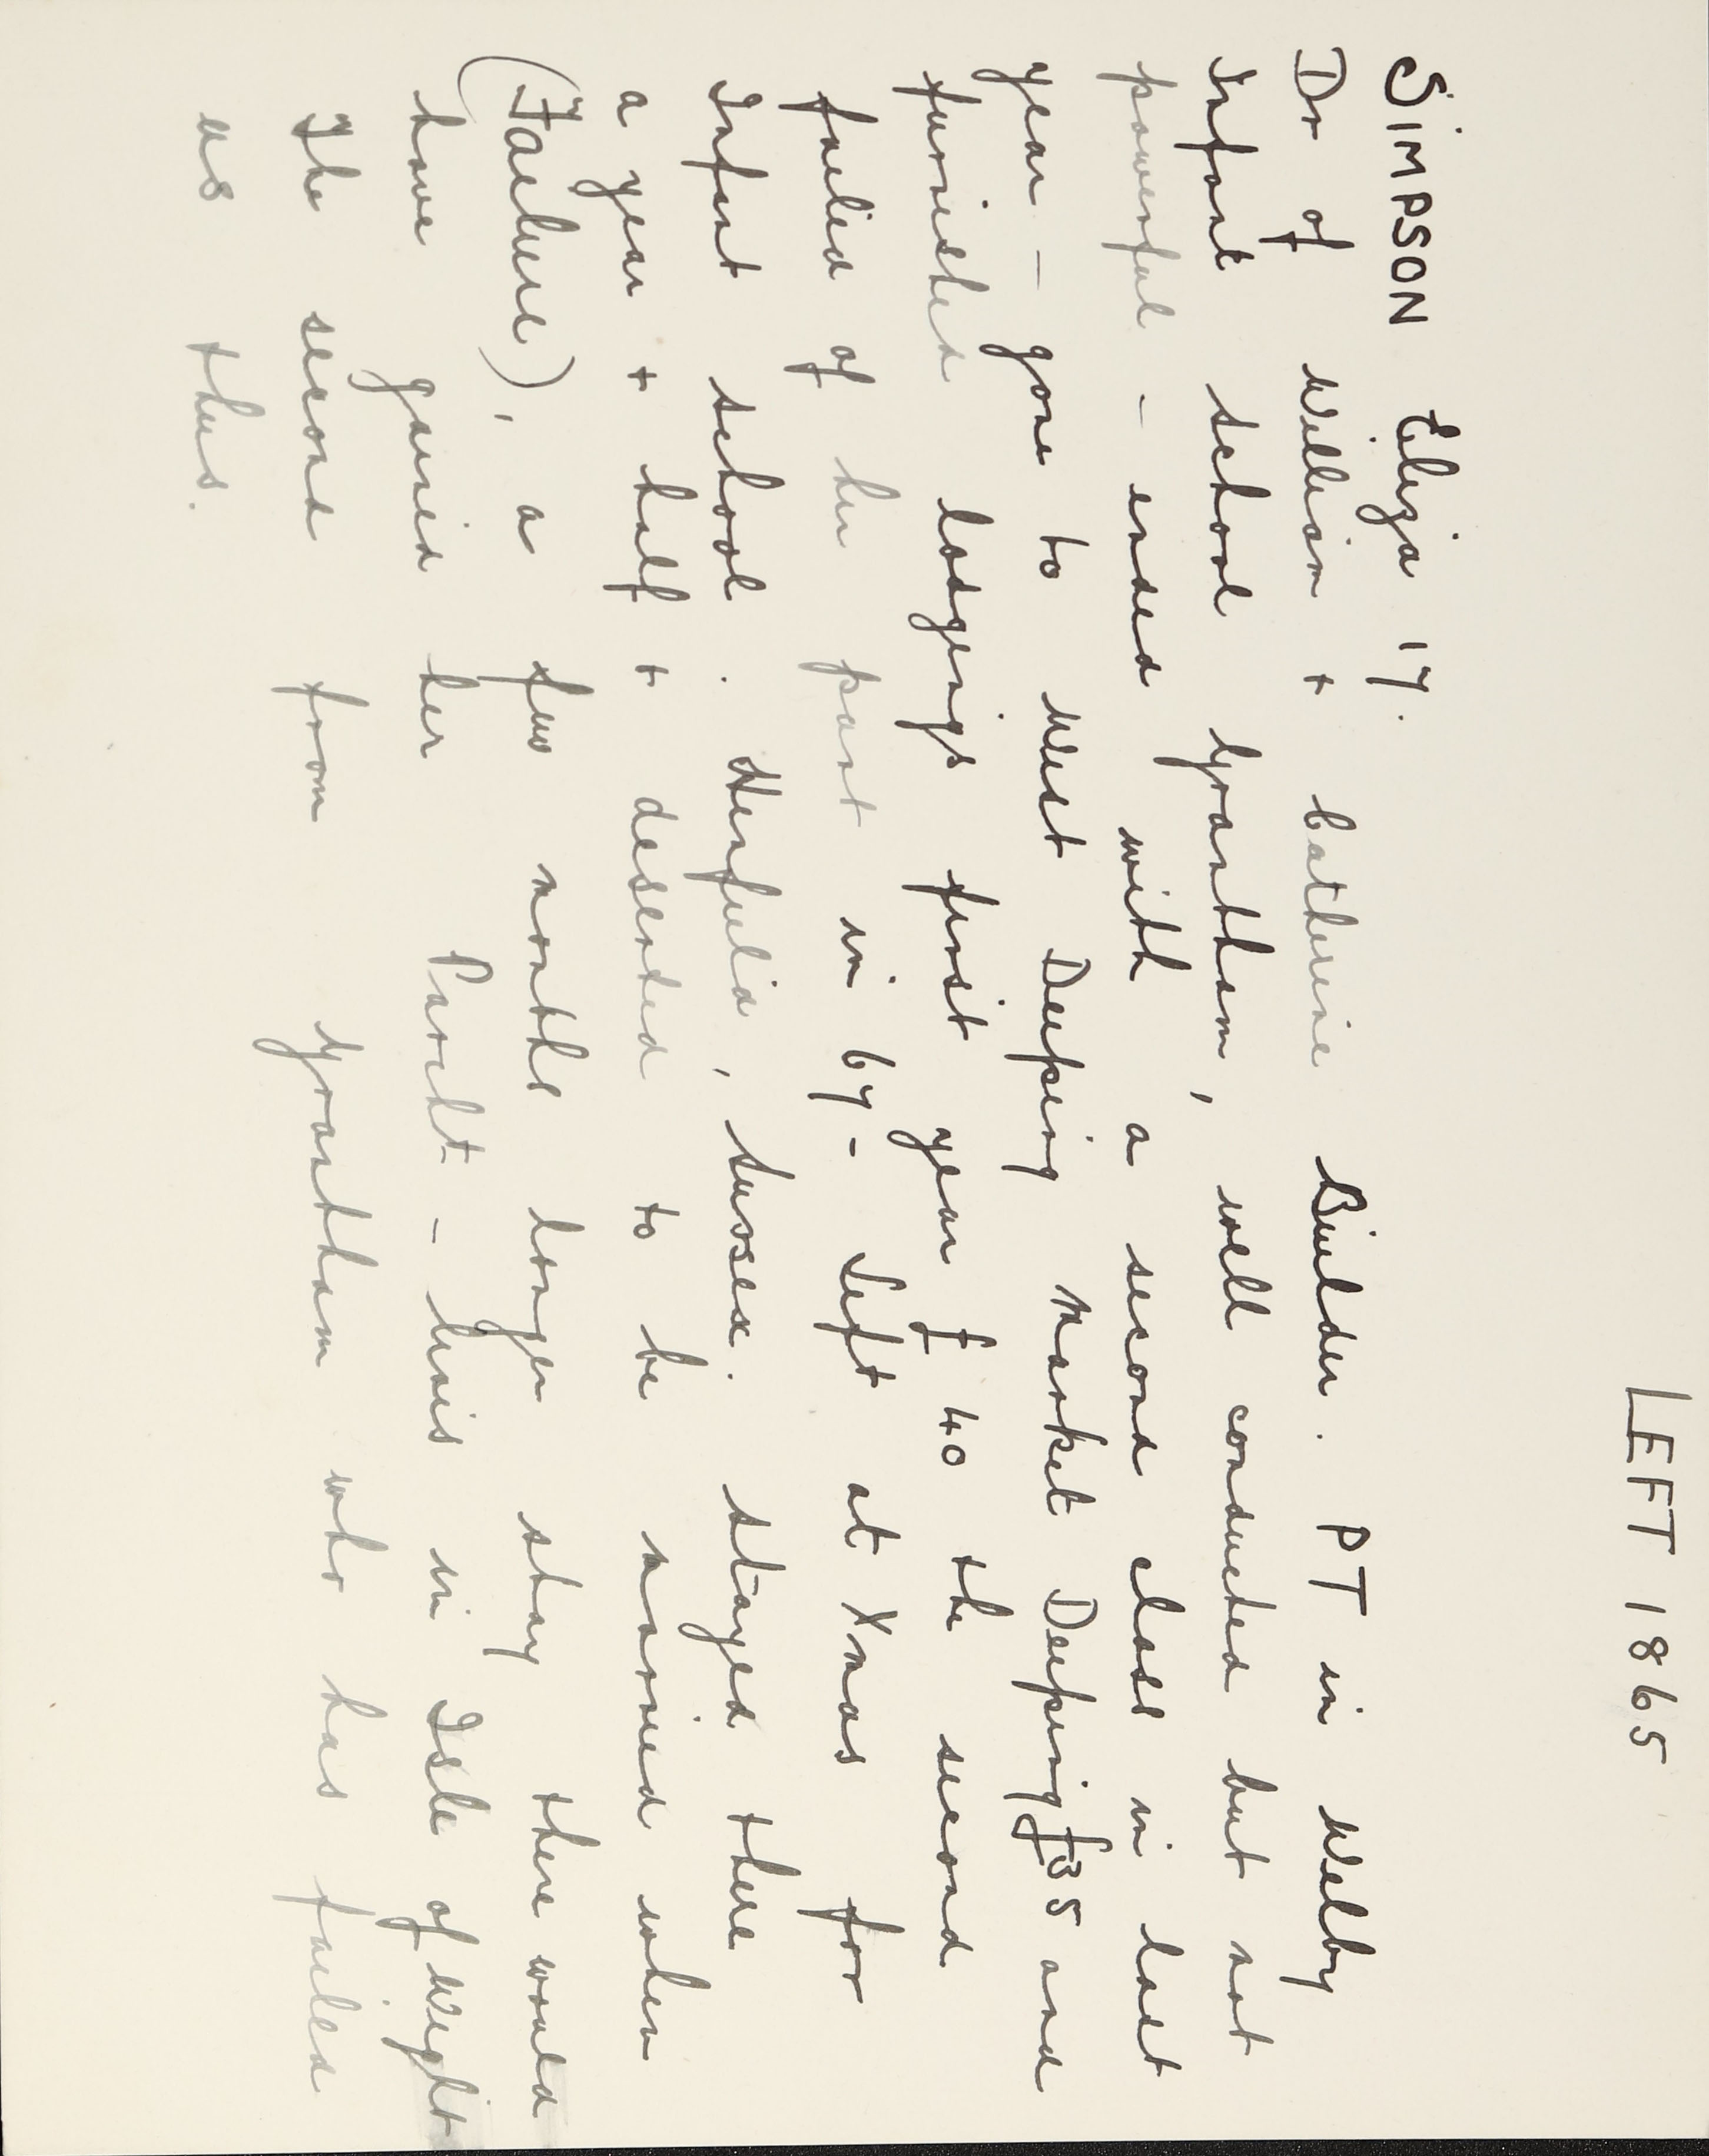 LEFT 1865
SIMPSON Eliza 17.
Dr of William + Catherine Builder. PT in Welby
Infant school Grantham, well conducted but not
powerful - ended with a second class in last
year - gone to West Deeping Market Deeping £35 and
furnished lodgings first year £40 the second
failed of her part in 67 - Left at Xmas for
Infant school. Henfield, Sussex. Stayed there
a year + half + deserted to be married when
(Failure), a few months longer stay there would
have gained her Parcht - lives in Isle of Wight
The second from Grantham who has failed
us thus.